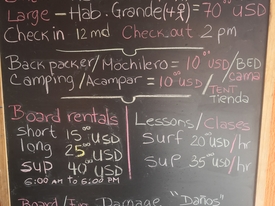 Large - Hab. Grande(4p) = 70⁰⁰ USD
Check in 12 md Check out 2 pm
Backpacker/Mochilero = 10⁰⁰ USD/BED
Camping/Acampar = 10⁰⁰ USD/ Cama
TENT
Tienda
Board rentals
short 15⁰⁰ USD
long 25⁰⁰ USD
SUP 40⁰⁰ USD
6:00 AM to 6:00 PM
Lessons/Clases
Surf 20 USD/hr
SUP 35 USD/hr
Board/Fin Damage "Daños"